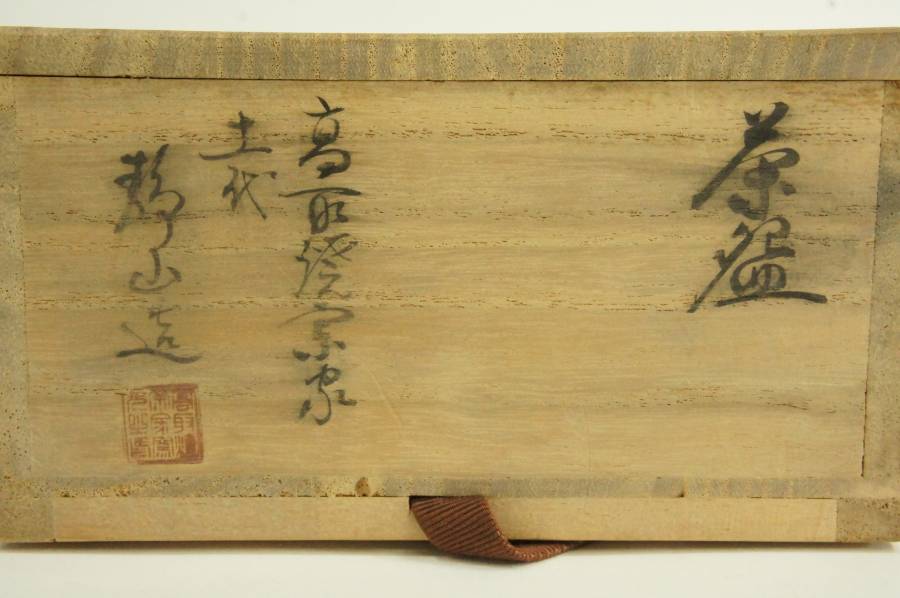 茶盌
高取焼宗家
十一代
静山造